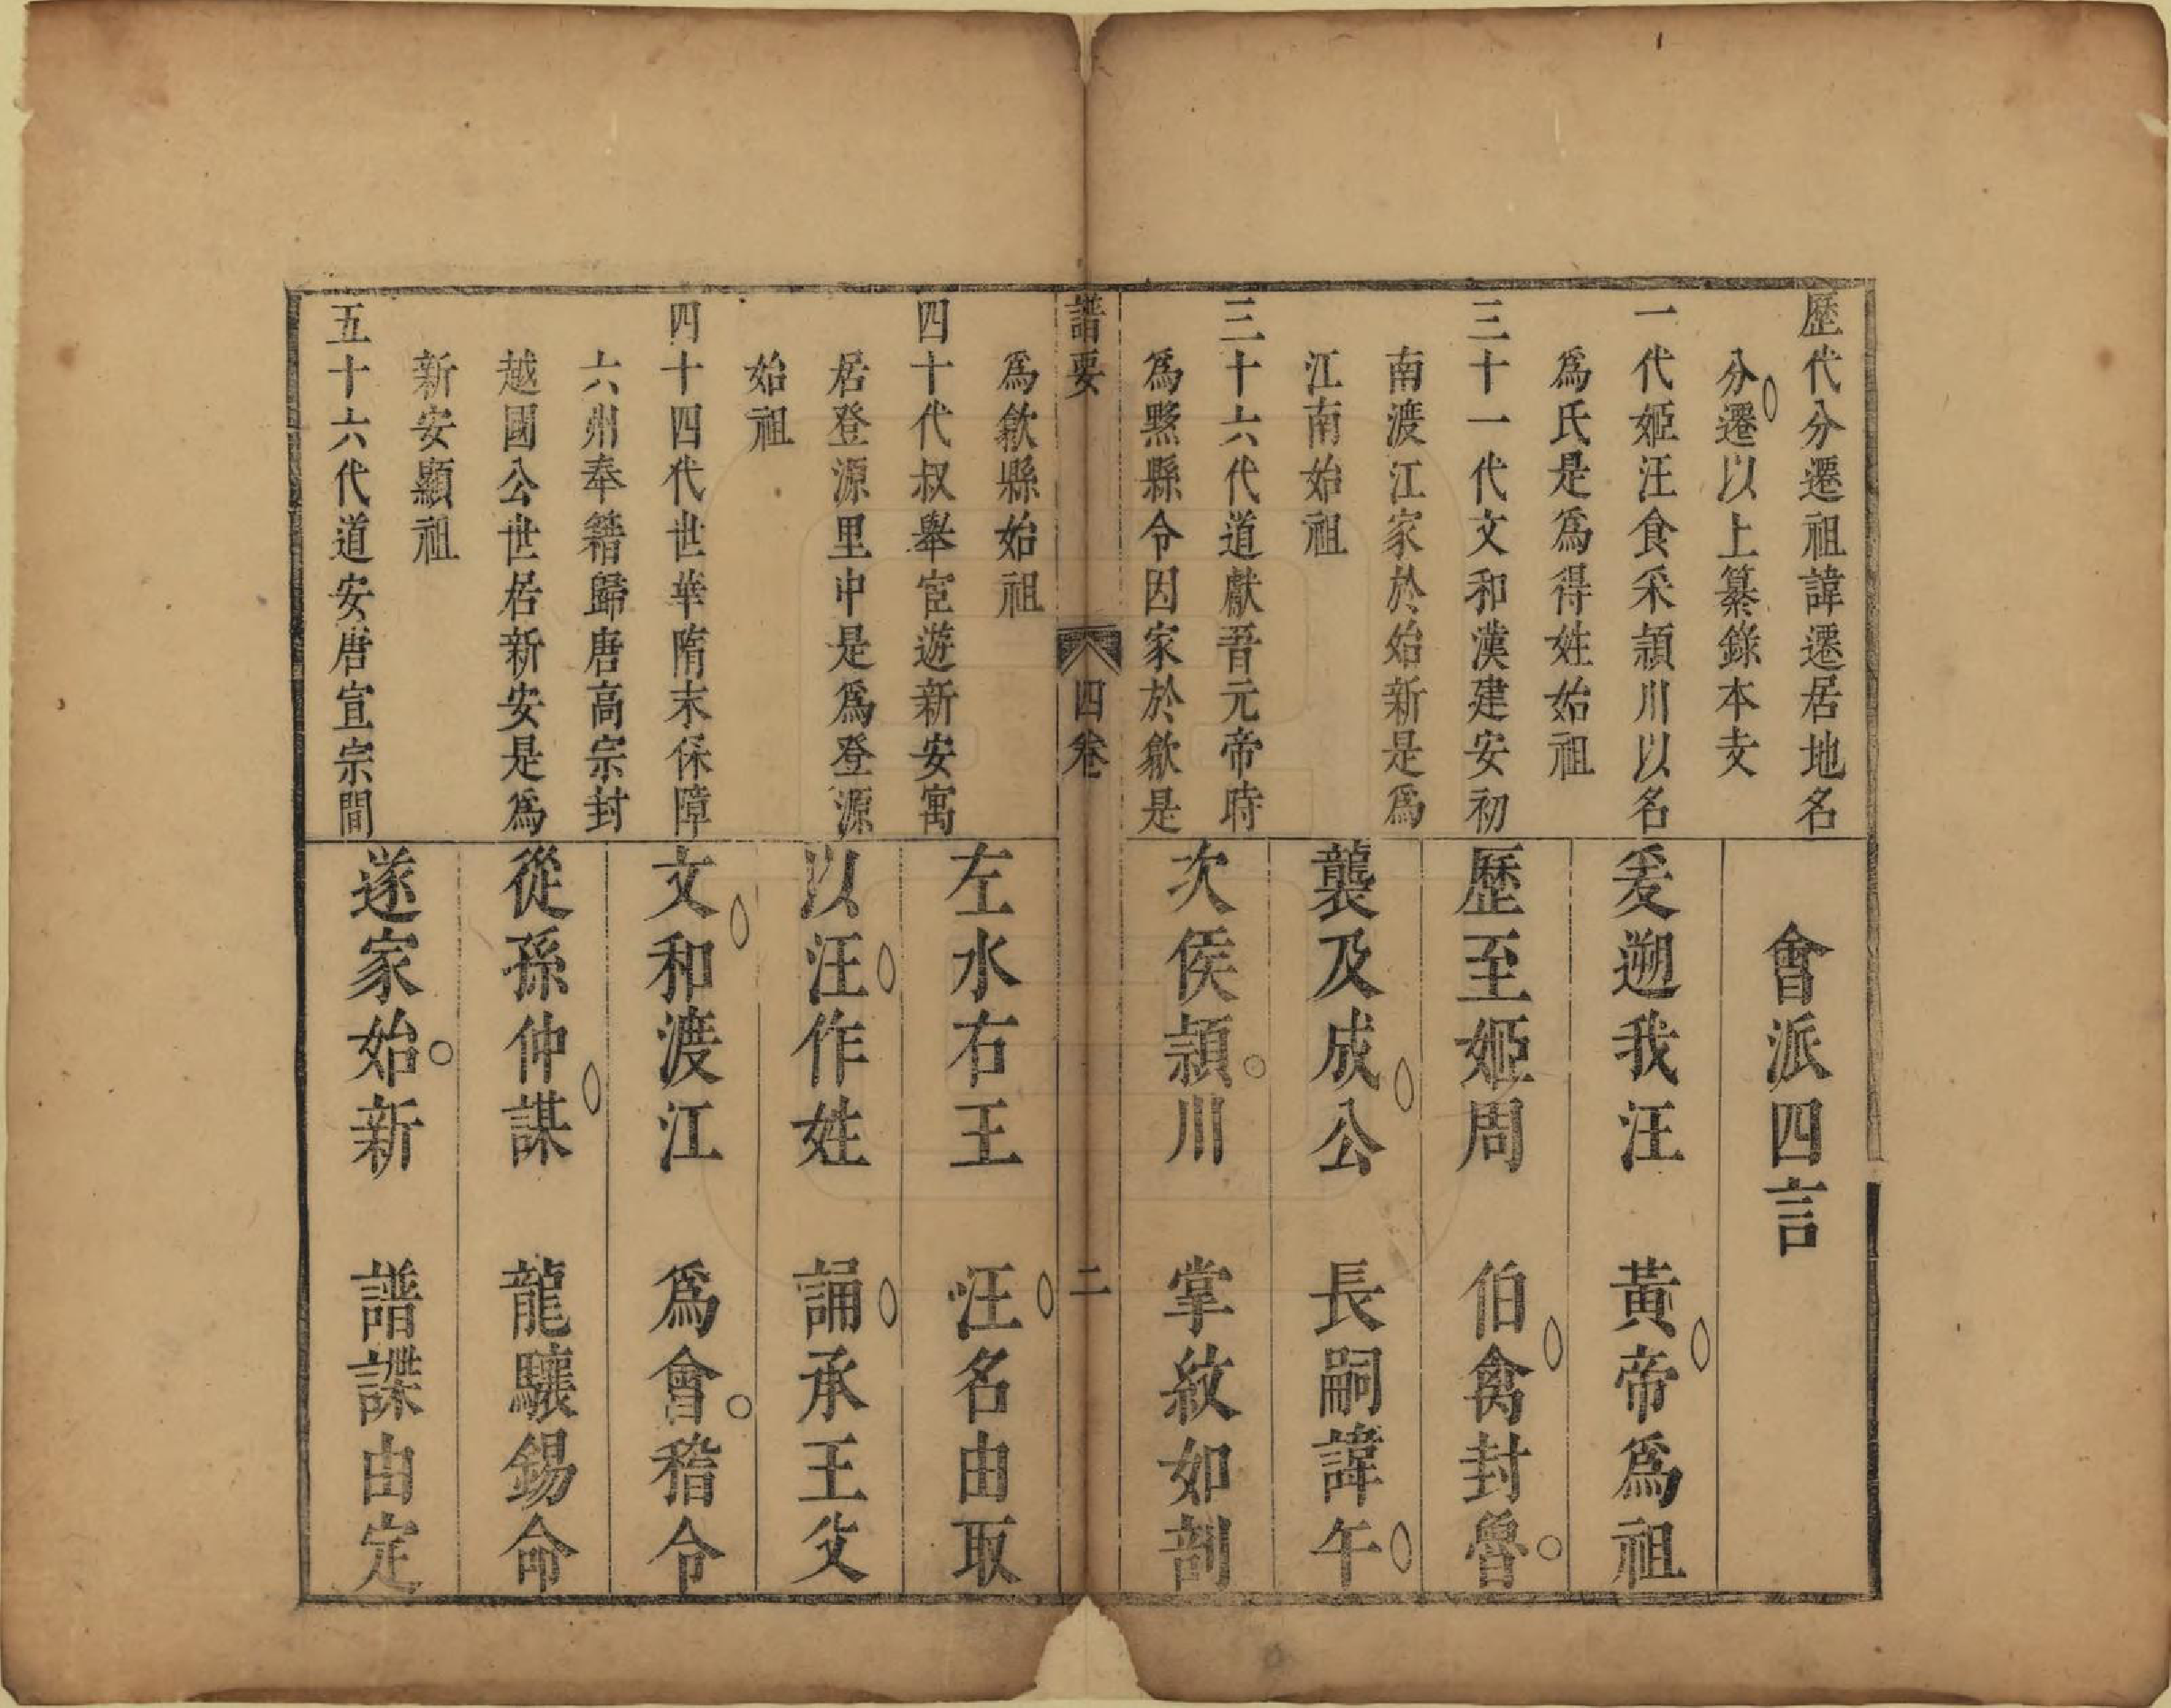 歷代分遷祖諱遷居地名
分遷以上纂錄本支
一代姬汪食采潁川以名
爲氏是爲得姓始祖
三十一代文和漢建安初
南渡江家於始新是爲
江南始祖
三十六代道獻晉元帝時
爲黟縣令因家於歙是
會派四言
爰遡我汪　黃帝爲祖
歷至姬周　伯禽封魯
襲及成公　長嗣諱午
次侯潁川　掌紋如剖
譜要　四卷　二
爲歙縣始祖
四十代叔舉宦遊新安寓
居登源里中是爲登源
始祖
四十四代世華隋末保障
六州奉籍歸唐高宗封
越國公世居新安是爲
新安顯祖
五十六代道安唐宣宗間
左水右王　汪名由取
以汪作姓　誦承王父
文和渡江　爲會稽令
從孫仲謀　龍驤錫命
遂家始新　譜諜由定